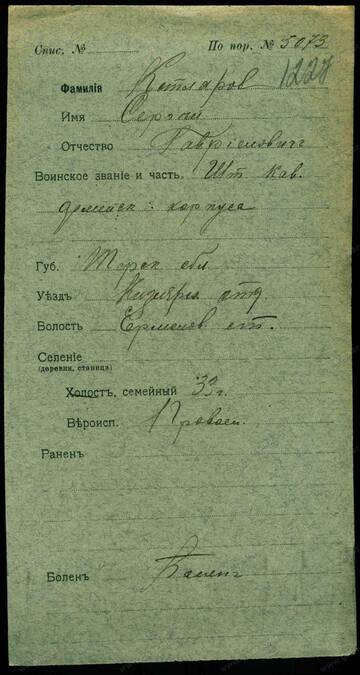 Спис. № По пор. № 5073
1227
Фамилія Котляров
Имя Сергѣй
Отчество Гавріиловичъ
Воинское званіе и часть. Шт. Кав.
армейск. корпуса
Губ. Терск обл
Уѣздъ Кизлярск. отд.
Волость Ермолов. ст.
Селеніе
(деревня, станица)
Холостъ, семейный 33 г.
Вѣроисп. Правосл.
Раненъ
Боленъ Боленъ